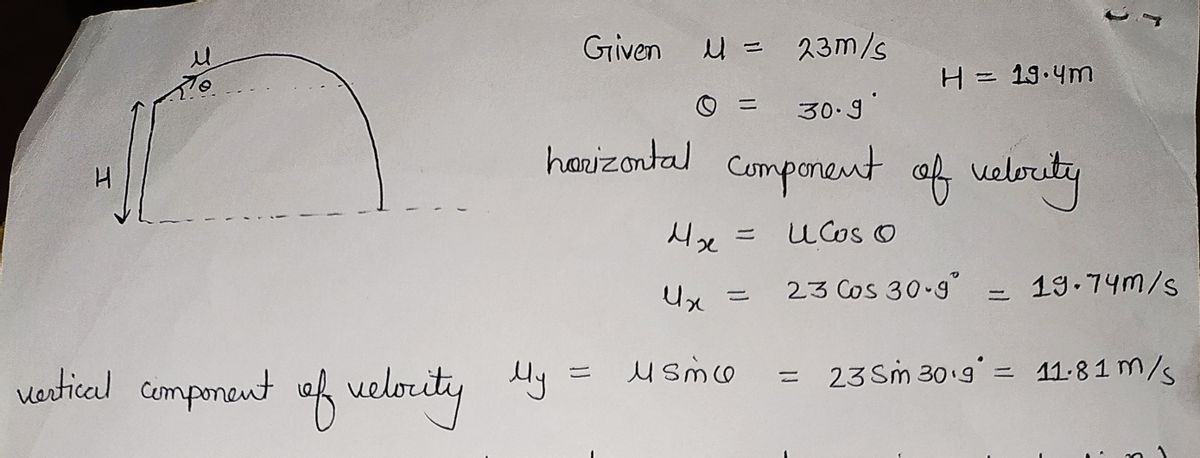 Given u = 23m/s
H = 19.4m
θ = 30.9°
u
θ
H
horizontal component of velocity
ux = u Cos θ
ux = 23 Cos 30.9° = 19.74m/s
vertical component of velocity uy = u sin θ = 23 Sin 30.9° = 11.81 m/s